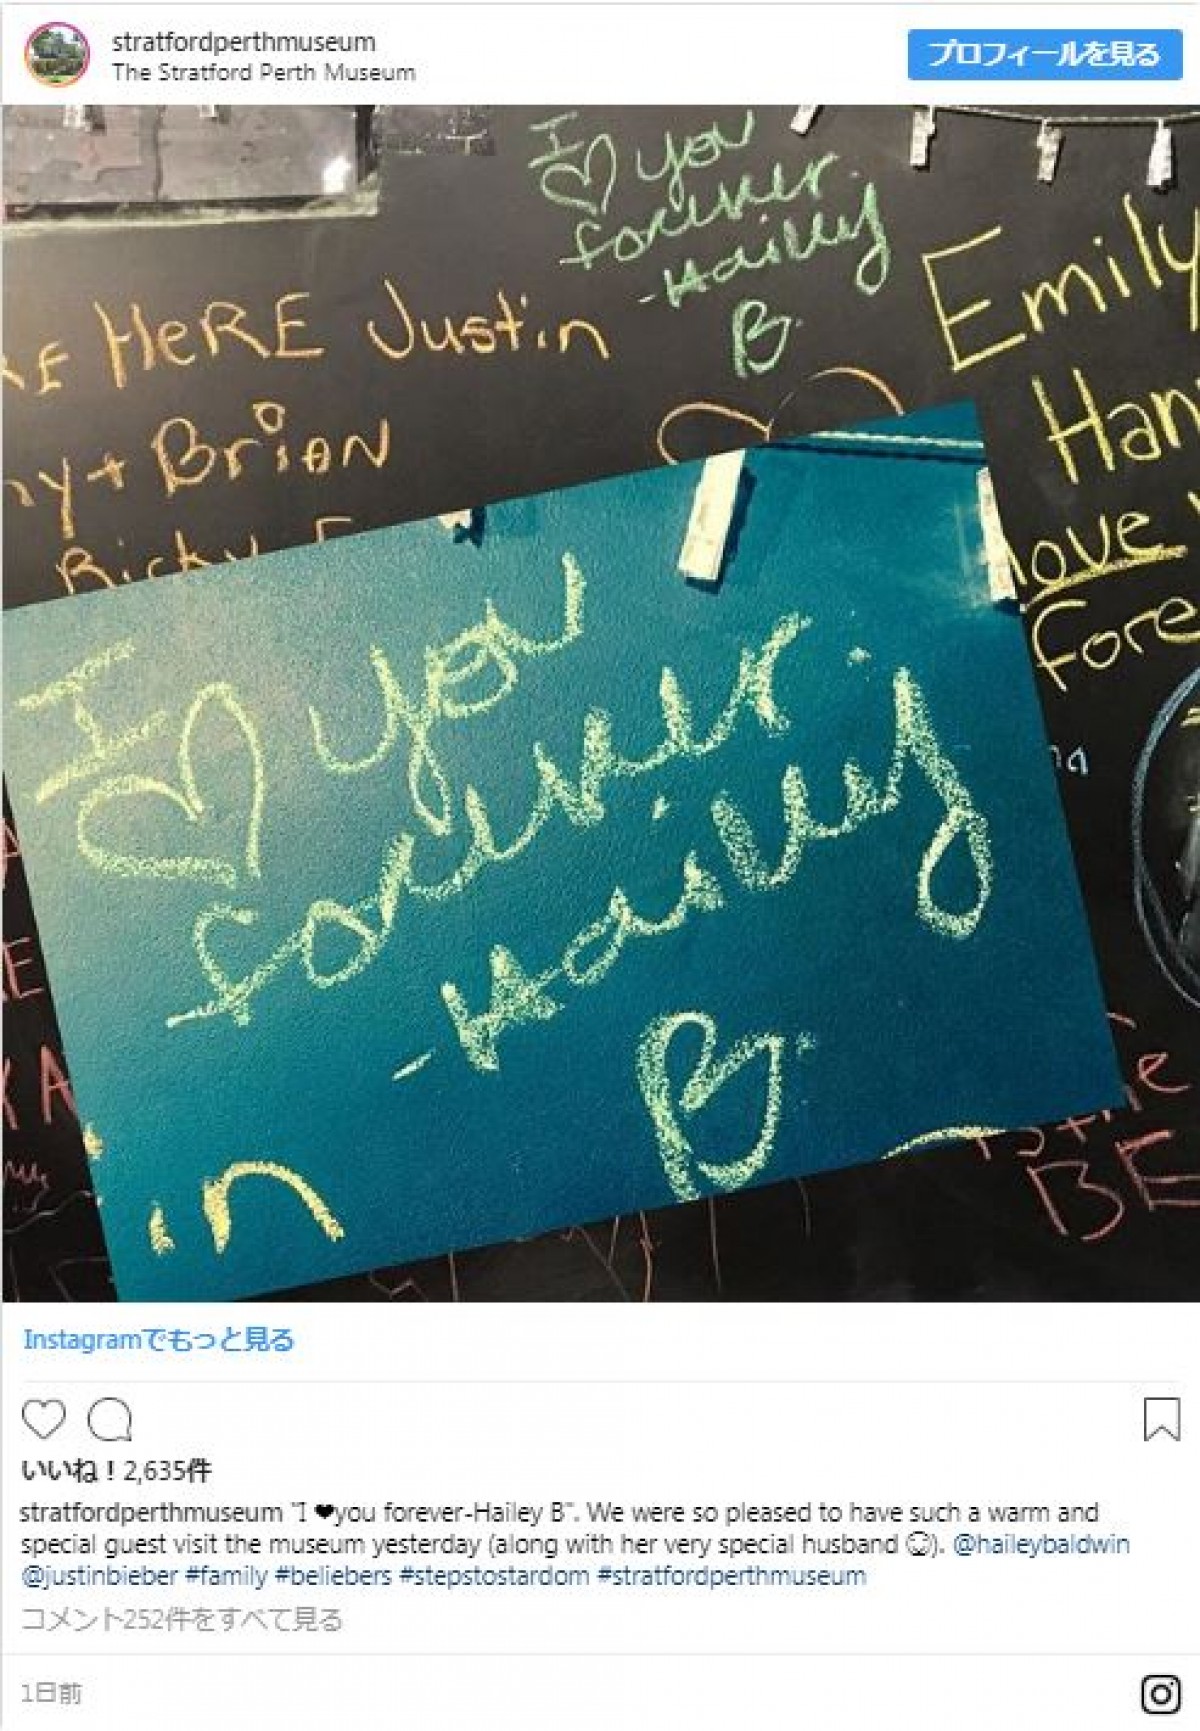 stratfordperthmuseum
The Stratford Perth Museum
プロフィールを見る
I
♡ you
forever.
-Hailey
B.
HeRE Justin
+ Brian
Ricky
Emily
Love
I
♡ you
forever.
-Hailey
B.
in
BE
Instagramでもっと見る
いいね！2,635件
stratfordperthmuseum "I ❤you forever-Hailey B". We were so pleased to have such a warm and
special guest visit the museum yesterday (along with her very special husband 😉). @haileybaldwin
@justinbieber #family #beliebers #stepstostardom #stratfordperthmuseum
コメント252件をすべて見る
1日前